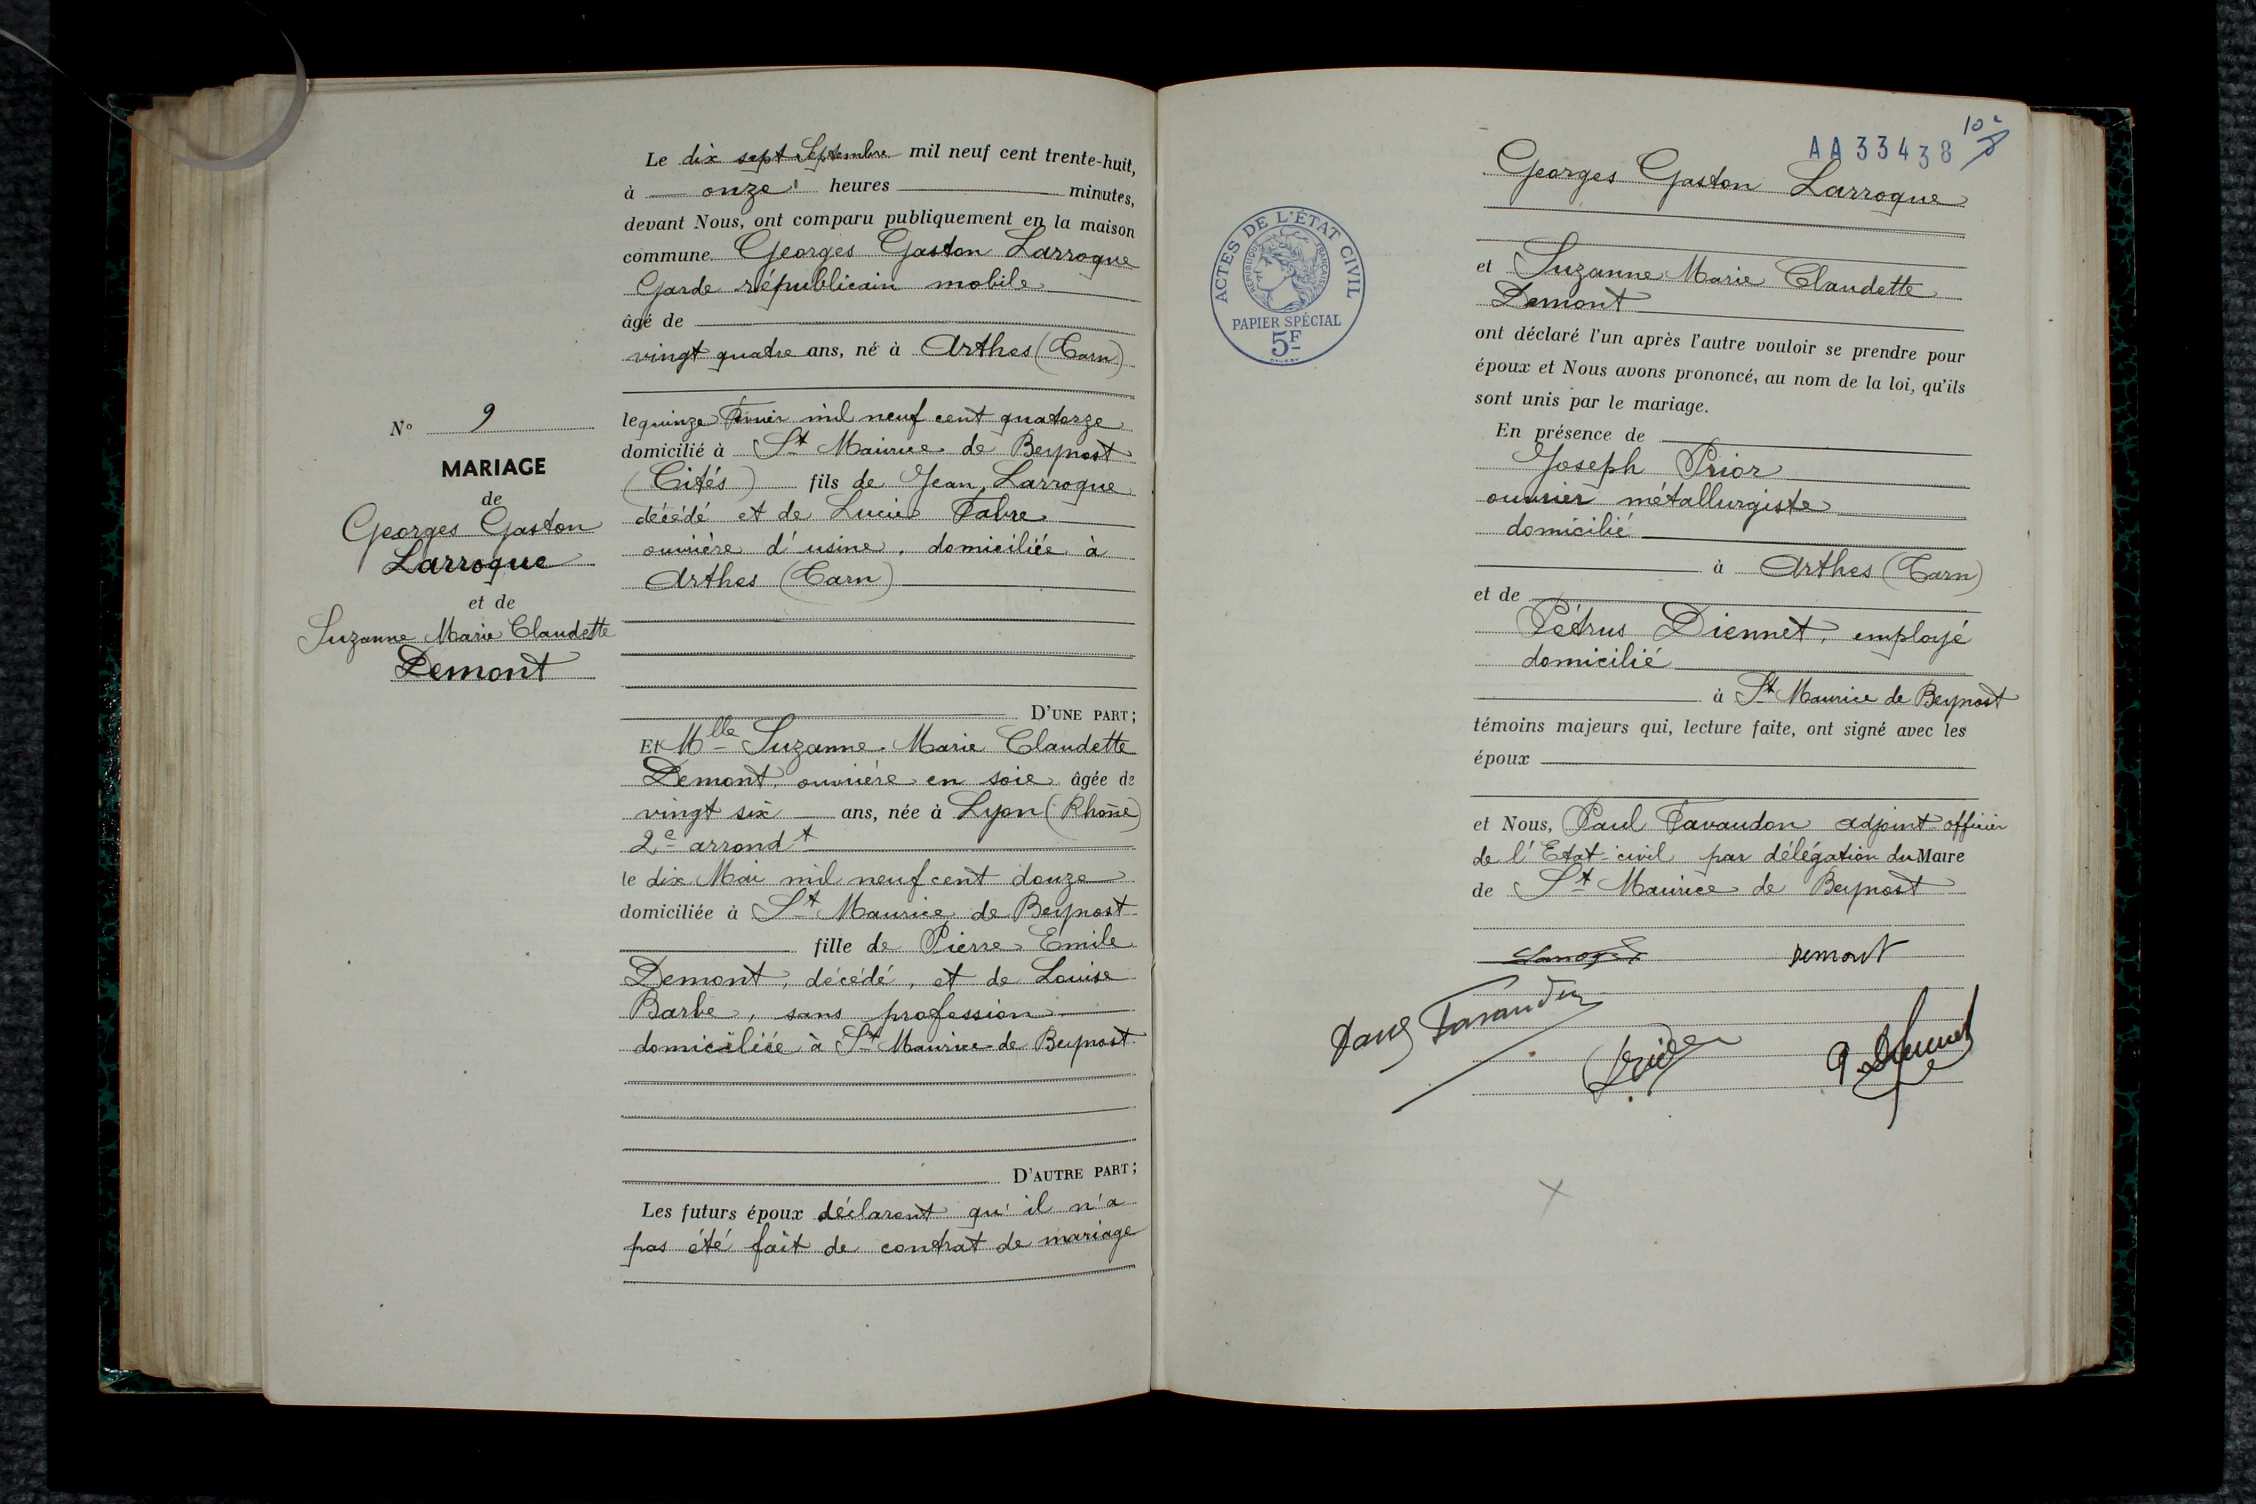 Le dix sept Septembre mil neuf cent trente-huit,
à onze heures minutes,
devant Nous, ont comparu publiquement en la maison
commune Georges Gaston Larroque
Garde républicain mobile
âgé de
vingt quatre ans, né à Arthes (Tarn)
le quinze mil neuf cent quatorze
domicilié à St Maurice de Beynost
(Cités) fils de Jean, Larroque
décédé et de Lucie Fabre
ouvrière d'usine, domiciliée à
Arthes (Tarn)
D'UNE PART;
N° 9
MARIAGE
de
Georges Gaston
Larroque
et de
Suzanne Marie Claudette
Demont
Et Mlle Suzanne Marie Claudette
Demont, ouvrière en soie âgée de
vingt six ans, née à Lyon (Rhône)
2e arrondt
le dix Mai mil neuf cent douze
domiciliée à St Maurice de Beynost
fille de Pierre Emile
Demont, décédé, et de Louise
Barbe, sans profession
domiciliée à St Maurice de Beynost
D'AUTRE PART;
Les futurs époux déclarent qu'il n'a
pas été fait de contrat de mariage
AA 33438
ACTES DE L'ÉTAT CIVIL
RÉPUBLIQUE FRANÇAISE
PAPIER SPÉCIAL
5F
Georges Gaston Larroque
et Suzanne Marie Claudette
Demont
ont déclaré l'un après l'autre vouloir se prendre pour
époux et Nous avons prononcé, au nom de la loi, qu'ils
sont unis par le mariage.
En présence de
Joseph Prior
ouvrier métallurgiste
domicilié
à Arthes (Tarn)
et de
Pétrus Diennet, employé
domicilié
à St Maurice de Beynost
témoins majeurs qui, lecture faite, ont signé avec les
époux
et Nous, Paul Favaudon adjoint officier
de l'Etat-civil par délégation du Maire
de St Maurice de Beynost
Demont
Paul Favaudon